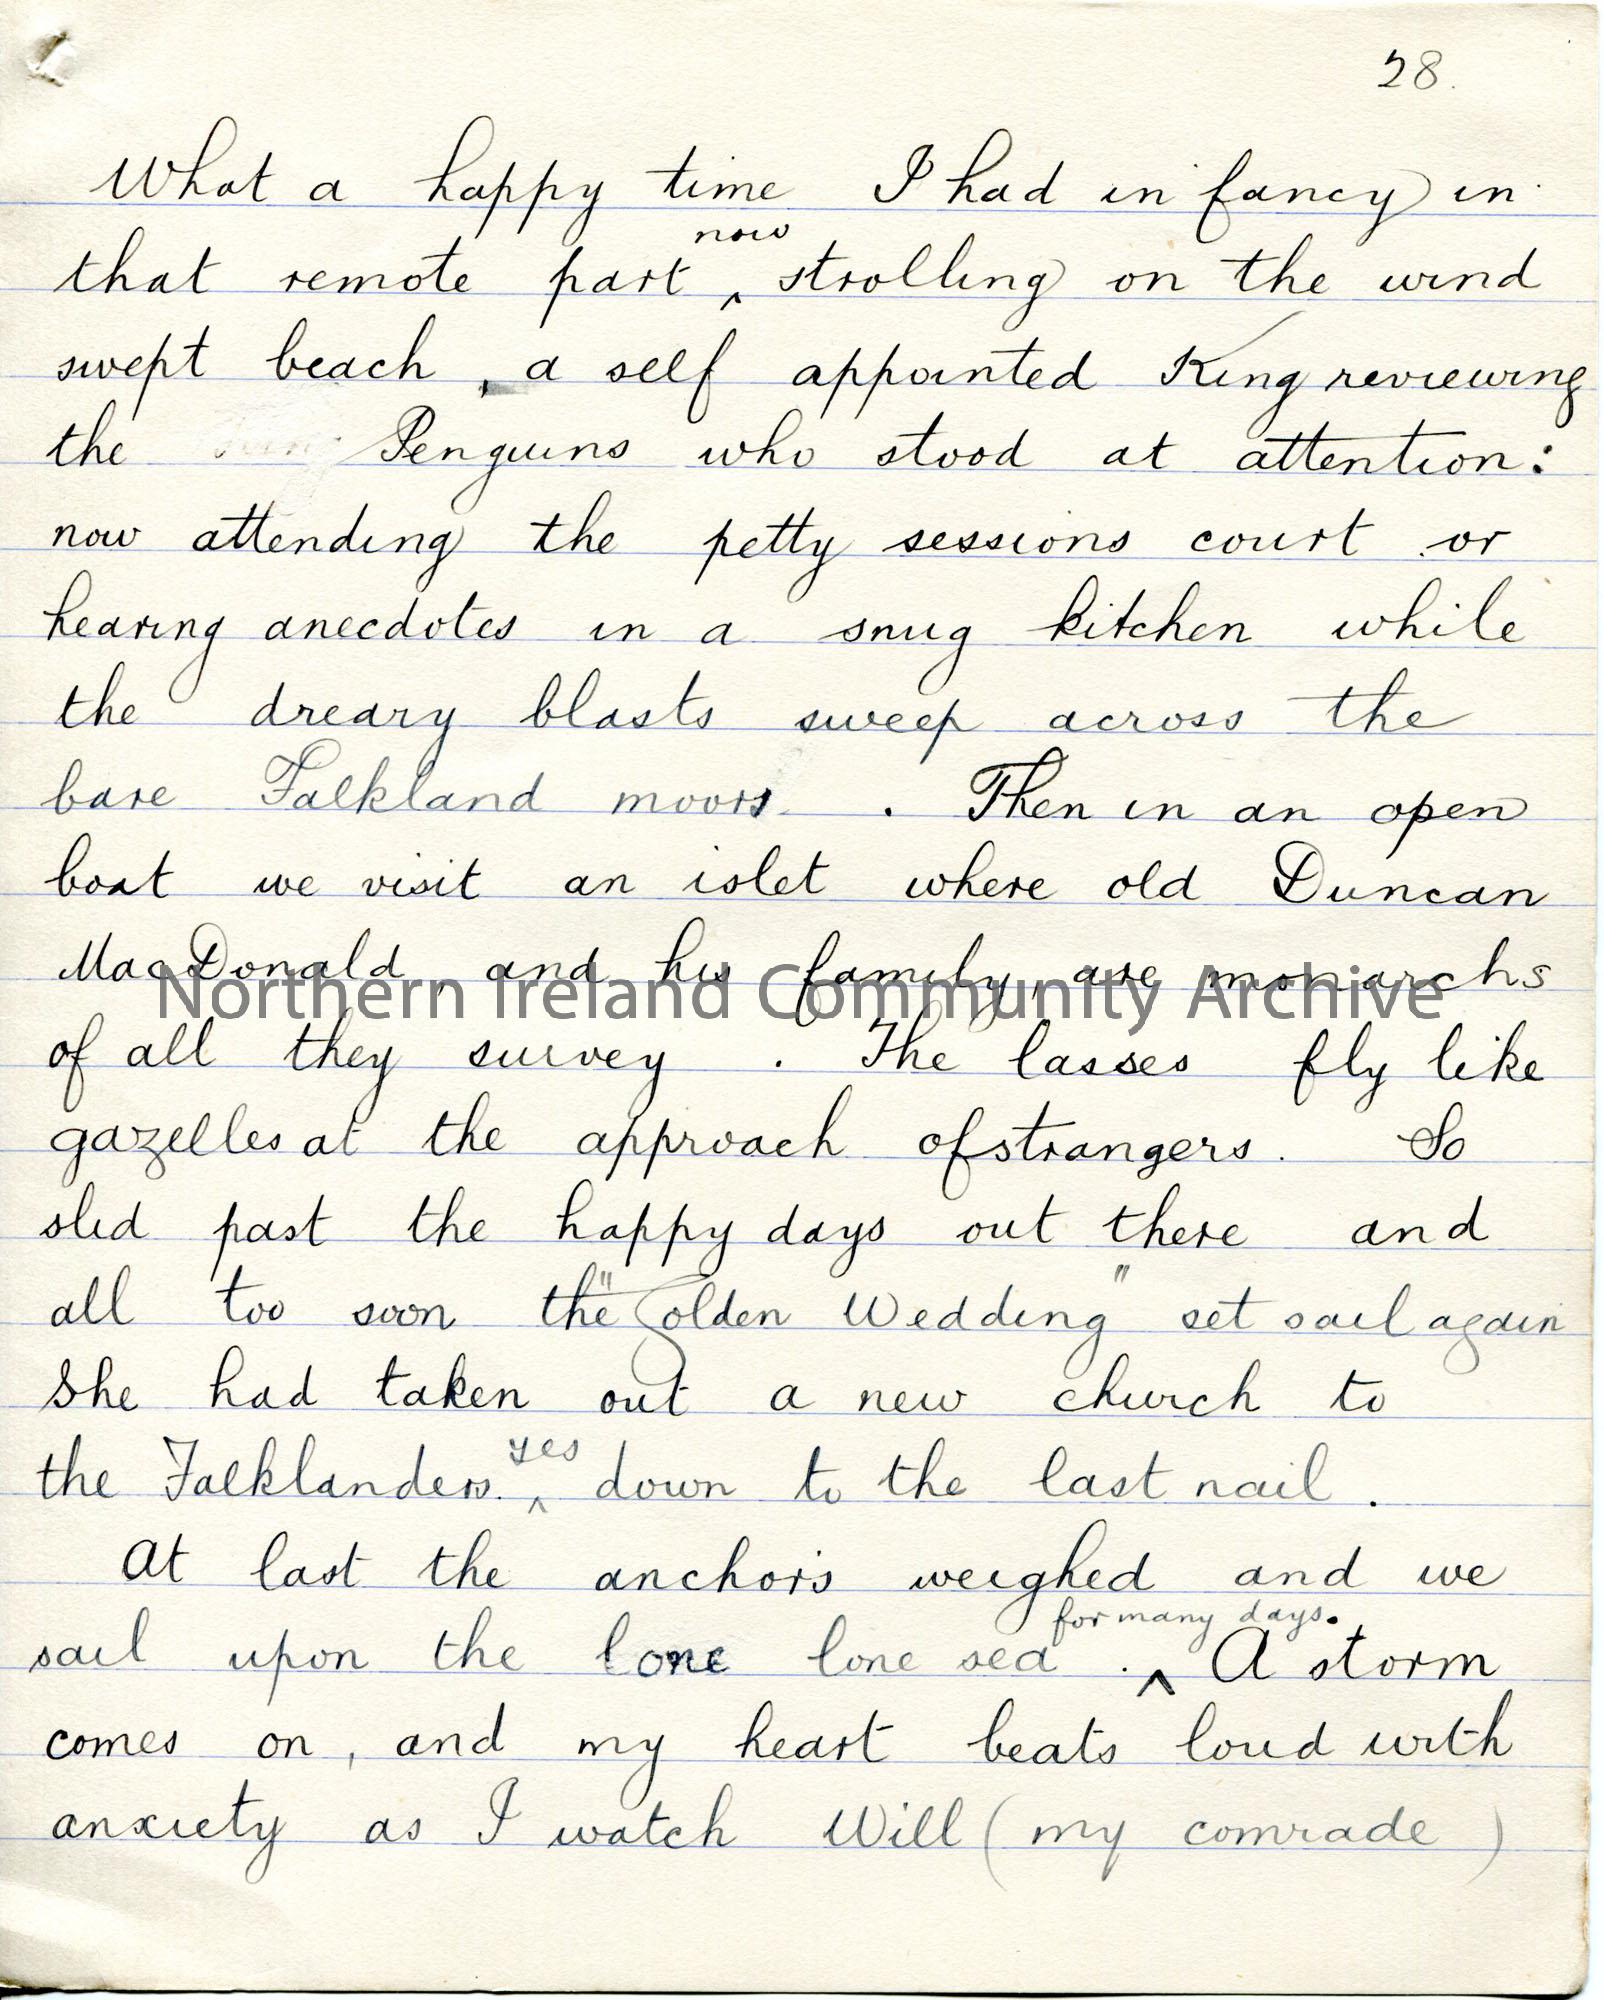 28.
What a happy time I had in fancy in
that remote part now strolling on the wind
swept beach, a self appointed King reviewing
the Penguins who stood at attention:
now attending the petty sessions court or
hearing anecdotes in a snug kitchen while
the dreary blasts sweep across the
bare Falkland moors. Then in an open
boat we visit an islet where old Duncan
MacDonald, and his family, are monarchs
Northern Ireland Community Archive
of all they survey. The lasses fly like
gazelles at the approach of strangers. So
slid past the happy days out there and
all too soon the "Golden Wedding" set sail again
She had taken out a new church to
the Falklanders. yes down to the last nail.
At last the anchors weighed and we
sail upon the lone lone sea. for many days. A storm
comes on, and my heart beats loud with
anxiety as I watch Will (my comrade)